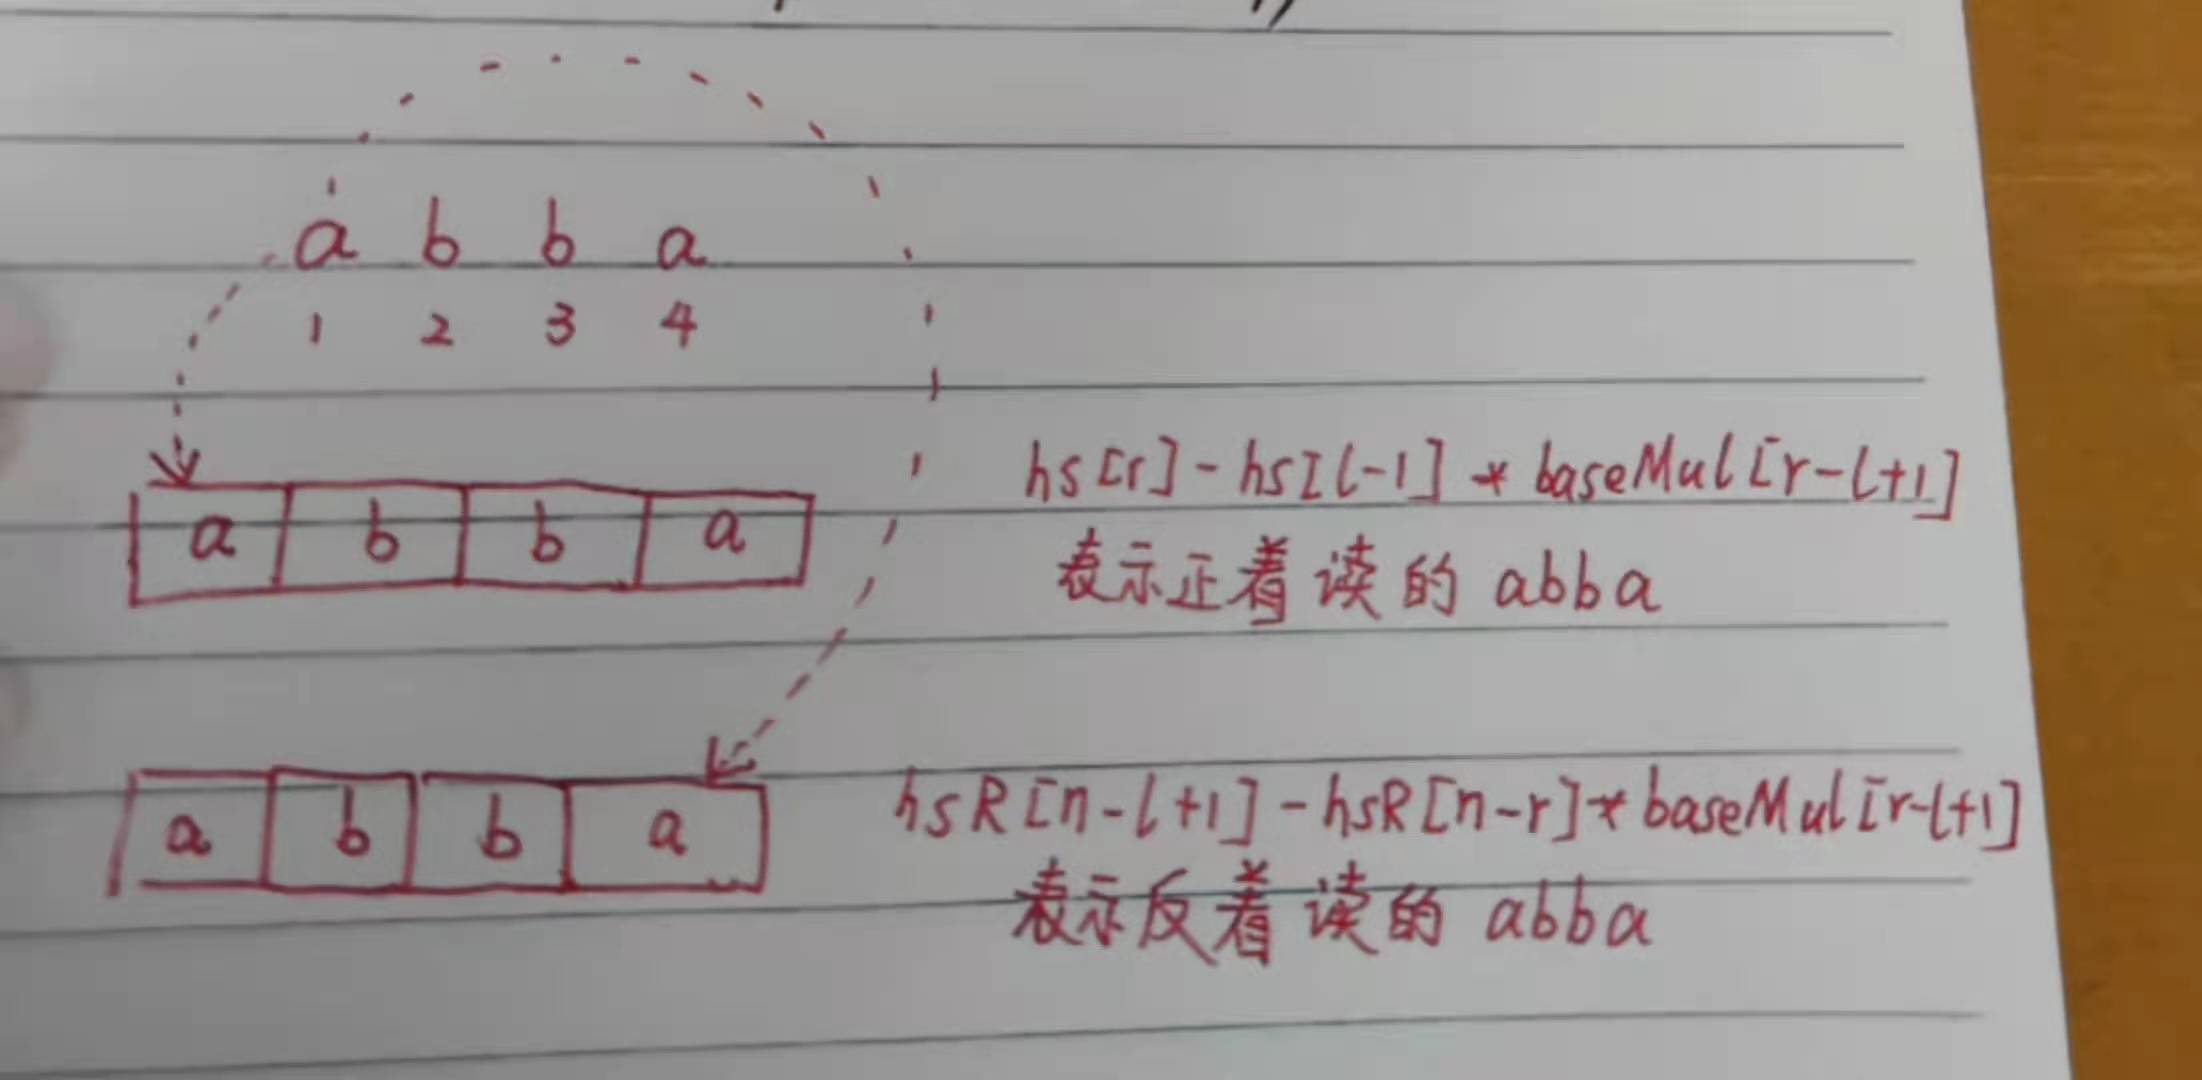 a b b a
1 2 3 4
hs[r]-hs[l-1]*baseMul[r-l+1]
a b b a
表示正着读的 abba
hsR[n-l+1]-hsR[n-r]*baseMul[r-l+1]
a b b a
表示反着读的 abba